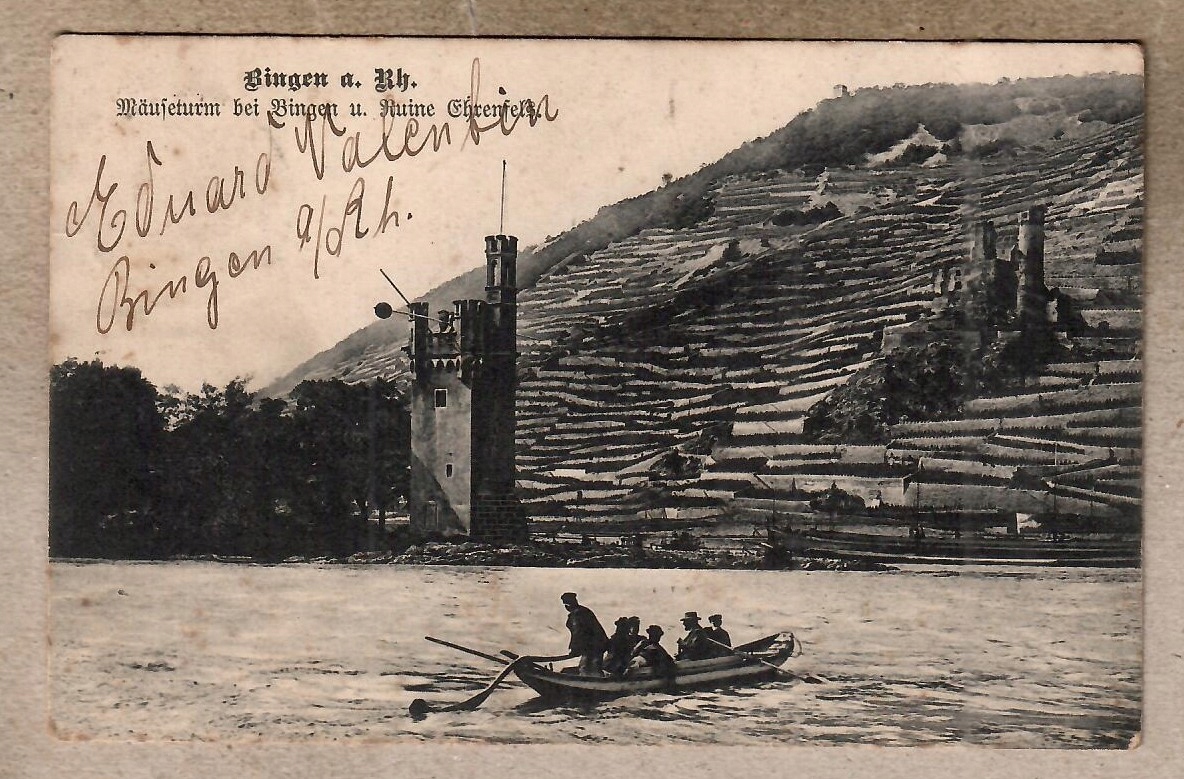 Bingen a. Rh.
Mäuseturm bei Bingen u. Ruine Ehrenfels.
Eduard Valenbin
Bingen a/Rh.